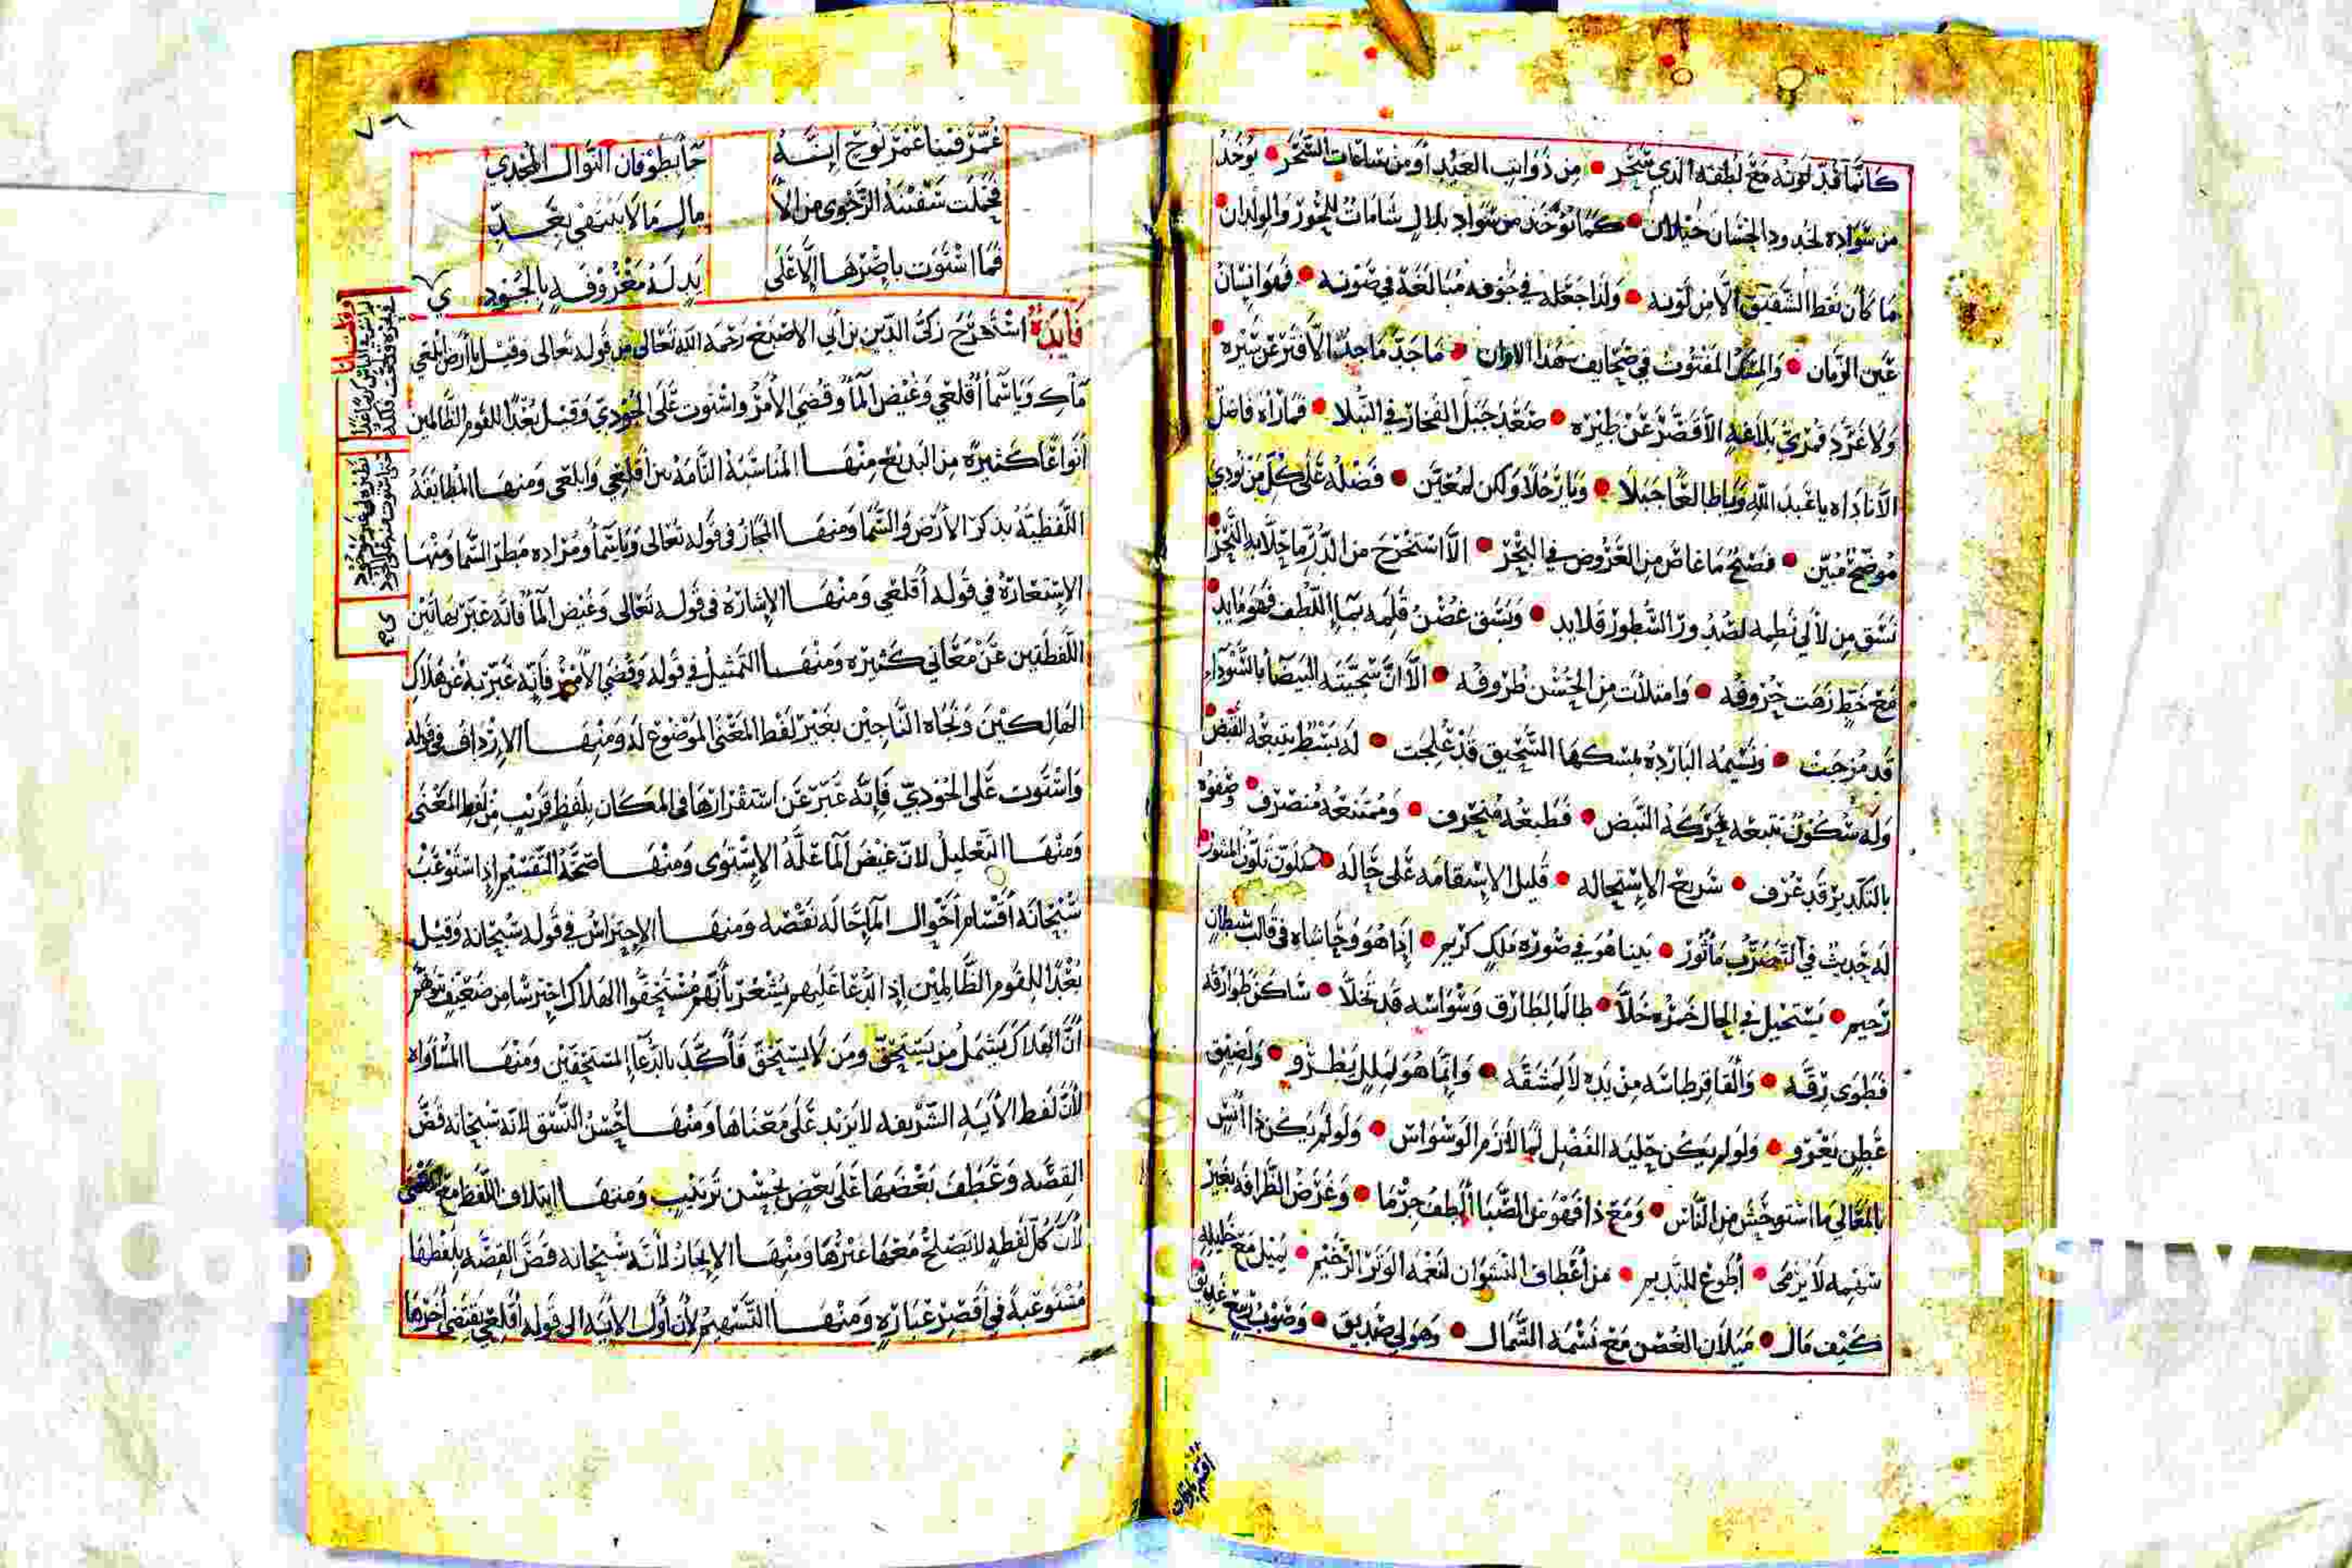 كانما قد لونه مع لطفه الذي سحر من ذوايب العبيد أو من ساعات السحر يوخذ
من سواده لخدود الحسان خيلان كما توخذ من سواد بلال شامات للحور والولدان
ما كان نقط الشقيق الا من لونه ولذا جعله في جوفه مبالغة في صونه فهو انسان
عين الزمان والمسك المفتوت في صحايف هذا الاوان ما جد ماجد الا قتر عن سيره
ولا غرد قمري بلاغه الا قصر عن طيره صعد جبل الفخار في النبلا فما راه فاضل
الا ناداه يا عبد الله ويا طالعا جبلا ويا رجلا ولكن لمعين فضله على كل من نودي
موضح مبين فصيح ما غاص من العروض في البحر الا استخرج من الدر ما حلا به النحر
نسق من لألي نظمه لصدور السطور قلايد وسقى غصن قلمه بماء اللطف فهو مايد
مع خط زهت حروفه وامتلات من الحسن ظروفه الا ان سجيته البيضا بالسوداء
قد مزجت ونسيمه البارده بمسكها السحيق قد علجت له بسط يتبعه القبض
وله سكون تتبعه حركة النبض فطبعه منحرف وممتنعه منصرف وصفوه
بالتكدير قد عرف سريع الاستحاله قليل الاستقامه على حاله متلون تلون المنثور
له حديث في التصرف ماثور بينا هو في صورة ملك كريم اذا هو وحاشاه في قالب شيطان
رجيم يستحيل في الحال خمره خلا طالما لطارق وسواسه قد تخلا ساكن طوارقه
فطوى رقه والقا قرطاسه من يده لا لمشقه وانما هو لملل يطرو ولضيق
عطن يعرو ولو لم يكن حلية الفضل لما لازم الوسواس ولو لم يكن ذا انس
بالمعالي ما استوحش من الناس ومع ذا فهو من الصبا ألطف جرما وغرض الظرافة بغير
سهمه لا يرمى أطوع للنديم من أعطاف النشوان لنغمة الوتر الرخيم يميل مع خليله
كيف مال ميلان الغصن مع نسمة الشمال وهو لي صديق وصوب
٧٦
عمر فينا عمر نوح إنه جا بطوفان النوال المجدي
فحملت سفينة الرجوى من الآ مال ما لا ينتهي بعد
فما استوت باضرها إلا على يد له معروفه بالجود ي
فايدة استخرج زكي الدين بن أبي الاصبع رحمه الله تعالى من قوله تعالى وقيل يا أرض ابلعي
ماءك ويا سما أقلعي وغيض الما وقضي الأمر واستوت على الجودي وقيل بعدا للقوم الظالمين
أنواعا كثيرة من البديع منها المناسبة التامة بين أقلعي وابلعي ومنها المطابقة
اللفظية بذكر الأرض والسما ومنها المجاز في قوله تعالى ويا سما ومراده مطر السما ومنها
الاستعارة في قوله أقلعي ومنها الإشارة في قوله تعالى وغيض الما فانه عبر بهاتين
اللفظتين عن معاني كثيره ومنها التمثيل في قوله وقضي الأمر فإنه عبر به عن هلاك
الهالكين ونجاة الناجين بغير لفظ المعنى الموضوع له ومنها الإرداف في قوله
واستوت على الجودي فإنه عبر عن استقرارها في المكان بلفظ قريب من لفظ المعنى
ومنها التعليل لان غيض الما علة الاستوى ومنها صحة التقسيم إذ استوعب
سبحانه أقسام أحوال الما حالة نقصه ومنها الإحتراس في قوله سبحانه وقيل
بعدا للقوم الظالمين إذ الدعا عليهم يشعر بأنهم مستحقوا الهلاك احترسا من ضعيف يتوهم
أن الهلاك يشمل من يستحق ومن لا يستحق فأكد بالدعاء المستحقين ومنها المساواة
لأن لفظ الأية الشريفه لا يزيد على معناها ومنها حسن النسق لانه سبحانه قص
القصة وعطف بعضها على بعض بحسن ترتيب ومنها ايتلاف اللفظ مع المعنى
لأن كل لفظه لا يصلح معها غيرها ومنها الايجاز لأنه سبحانه قص القصه بلفظها
مستوعبة في أقصر عبارة ومنها التسهيم لأن أول الأية الى قوله أقلعي يقتضي أخرها